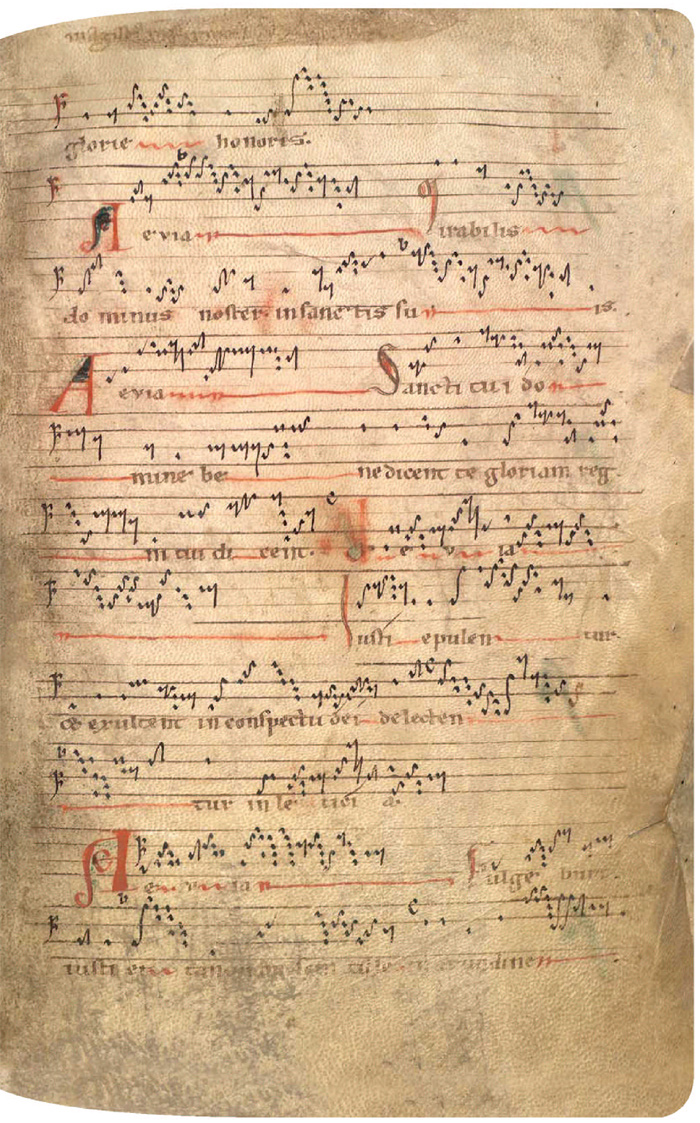 glorie honoris.
A evia irabilis
do minus noster in sanctis su is.
A evia Sancti tui do
mine be nedicent te gloriam reg
ni tui di cent. A e v ia
iusti epulen tur.
et exultent in conspectu dei delecten
tur in le tici a.
A e v ia Fulge bunt
iusti et